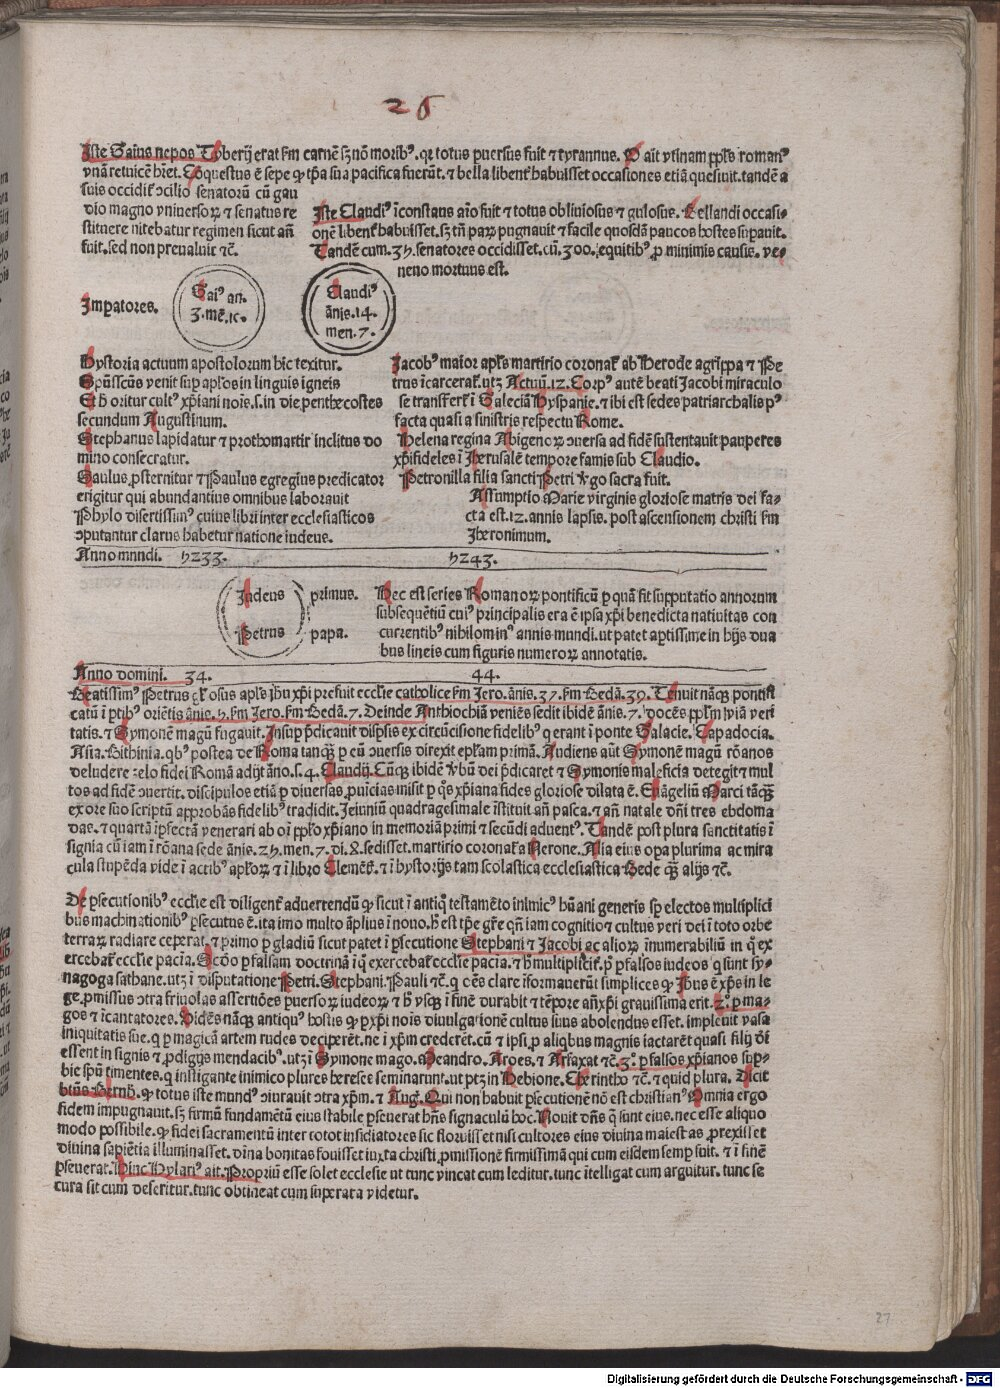 26
Iste Gaius nepos Tyberij erat ẜm carnē sꝫ nō moribꝰ. qꝛ totus ꝑuersus fuit ⁊ tyrannus. D ait vtinam ppl̄s romanꝰ
vnā ceruicē hr̄et. Cōquestus ē sepe ꝙ tp̄a sua pacifica fuerūt. ⁊ bella libent͛ habuisset occasiones etiā quesiuit. tandē a
suis occidit͛ ↄcilio senatorū cū gau
dio magno vniuersoꝝ ⁊ senatus re
stituere nitebatur regimen sicut añ
fuit. sed non preualuit ⁊c̄.
Iste Claudiꝰ īconstans aīo fuit ⁊ totus obliuiosus ⁊ gulosus. Bellandi occasi-
onē libent͛ habuisset. sꝫ tn̄ paꝝ pugnauit ⁊ facile quosdā paucos hostes suꝑauit.
Tandē cum .35. senatores occidisset. cū .300. equitibꝰ ꝓ minimis causis. ve-
neno mortuus est.
Imꝑatores.
Gaiꝰ an.
3. mē. 10.
Claudiꝰ
ānis. 14.
men. 7.
Hystoria actuum apostolorum hic texitur.
Spūsscūs venit suꝑ apl̄os in linguis igneis
Et h̄ oritur cultꝰ xp̄iani noīs. s. in die penthecostes
secundum Augustinum.
Stephanus lapidatur ⁊ prothomartir inclitus do
mino consecratur.
Saulus ꝓsternitur ⁊ Paulus egregius predicator
erigitur qui abundantius omnibus laborauit
Phylo disertissimꝰ cuius libri inter ecclesiasticos
ↄputantur clarus habetur natione iudeus.
Jacobꝰ maior apl̄s martirio coronat͛ ab Herode agrippa ⁊ Pe
trus īcarcerat͛. utꝫ Actuū. 12. Corpꝰ autē beati Jacobi miraculo
se transfert͛ ī Galeciā Hyspanie. ⁊ ibi est sedes patriarchalis pꝰ
facta quasi a sinistris respectu Rome.
Helena regina Abigenoꝝ ↄuersa ad fidē sustentauit pauperes
xp̄ifideles ī Jherusalē tempore famis sub Claudio.
Petronilla filia sancti Petri v͛go sacra fuit.
Assumptio Marie virginis gloriose matris dei fa-
cta est. 12. annis lapsis. post ascensionem christi ẜm
Jheronimum.
Anno mundi. 5233. 5243.
Indeus primus.
Petrus papa.
Hec est series Romanoꝝ pontificū ꝑ quā fit supputatio annorum
subsequētiū cuiꝰ principalis era ē ipsa xp̄i benedicta natiuitas con
currentibꝰ nihilominꝰ annis mundi. ut patet aptissime in hijs dua
bus lineis cum figuris numeroꝝ annotatis.
Anno domini. 34. 44.
Beatissimꝰ Petrus gl̄iosus apl̄s ih̄u xp̄i prefuit eccl̄ie catholice ẜm Jero. ānis. 37. ẜm Bedā. 39. Tenuit nāqꝫ pontifi
catū ī ꝑtibꝰ oriētis ānis. 5. ẜm Jero. ẜm Bedā. 7. Deinde Anthiochiā veniēs sedit ibidē ānis. 7. docēs ppl̄m viā veri
tatis. ⁊ Symonē magū fugauit. Insuꝑ p̄dicauit disꝑsis ex circūcisione fidelibꝰ q̇ erant ī ponte Galacie. Capadocia.
Asia. Bithinia. qbꝰ postea de Roma tanqꝫ ꝑ eū ↄuersis direxit epl̄am primā. Audiens aūt Symonē magū rōanos
deludere zelo fidei Romā adijt āno. s. 4. Claudij. Cūqꝫ ibidē v͛bū dei p̄dicaret ⁊ Symonis maleficia detegit ⁊ mul
tos ad fidē ↄuertit. discipulos etiā ꝑ diuersas ꝓuīcias misit ꝑ qͦs xp̄iana fides gloriose dilata ē. Euāgeliū Marci tāqꝫ
ex ore suo scriptū approbās fidelibꝰ tradidit. Jeiuniū quadragesimale īstituit añ pasca. ⁊ añ natale dn̄i tres ebdoma
das. ⁊ quartā īꝑfectā venerari ab oī ppl̄o xp̄iano in memoriā primi ⁊ secūdi aduentꝰ. Tandē post plura sanctitatis ī
signia cū iam ī rōana sede ānis. 25. men. 7. di. 8. sedisset. martirio coronat͛ a Nerone. Alia eius oꝑa plurima ac mira
cula stupēda vide ī actibꝰ apl̄oꝝ ⁊ ī libro Clemēt͛. ⁊ ī hystorijs tam scolastica ecclesiastica Bede qꝫ alijs ⁊c̄.
De ꝑsecutionibꝰ eccl̄ie est diligent͛ aduertendū ꝙ sicut ī antiq̇ testamēto inimicꝰ hūani generis sꝑ electos multiplici
bus machinationibꝰ ꝑsecutus ē. ita imo multo āplius ī nouo. h̄ est tꝑe gr̄e qñ iam cognitio ⁊ cultus veri dei ī toto orbe
terraꝝ radiare ceperat. ⁊ primo ꝑ gladiū sicut patet ī ꝑsecutione Stephani ⁊ Jacobi ac alioꝝ īnumerabiliū in q̇ ex
ercebat͛ eccl̄ie pacīa. Scd̄o ꝑ falsam doctrinā ī q̇ exercebat͛ eccl̄ie pacīa. ⁊ h̄ multiplicit͛. pͥ ꝑ falsos iudeos q̇ sunt sy-
nagoga sathane. utꝫ ī disputatione Petri. Stephani. Pauli ⁊c̄. q̇ oēs clare īformauerūt simplices ꝙ Jh̄us ē xp̄s in le
ge ꝓmissus ↄtra friuolas assertiōes ꝑuersoꝝ iudeoꝝ ⁊ h̄ vsqꝫ ī finē durabit ⁊ tēpore añxp̄i grauissima erit. 2º. ꝑ ma-
gos ⁊ īcantatores. Uidēs nāqꝫ antiquꝰ hostis ꝙ ꝑ xp̄i noīs diuulgationē cultus suus abolendus esset. impleuit vasa
iniquitatis sue. q̇ ꝑ magicā artem rudes deciperēt. ne ī xp̄m crederēt. cū ⁊ ipsi ꝓ aliqbus magnis iactarēt quasi filij dei
essent in signis ⁊ ꝓdigijs mendacibꝰ. utꝫ ī Symone mago. Meandro. Aroes. ⁊ Arfaxat ⁊c̄. 3º. ꝑ falsos xp̄ianos suꝑ-
bie spū timentes. q̇ instigante inimico plures hereses seminarunt. ut ptꝫ in Hebione. Cherintho ⁊c̄. ⁊ quid plura. Dicit
btūs Bernh̄. ꝙ totus iste mundꝰ ↄiurauit ↄtra xp̄m. ⁊ Aug. Qui non habuit ꝑsecutionē nō est christianꝰ Omnia ergo
fidem impugnauit. sꝫ firmū fundamētū eius stabile ꝑseuerat hn̄s signaculū hoc. Nouit dn̄s q̇ sunt eius. nec esse aliquo
modo possibile. ꝙ fidei sacramentū inter totot insidiatores sic floruisset nisi cultores eius diuina maiestas ꝓtexisset
diuina sapiētia illuminasset. diuīa bonitas fouisset iuxta christi ꝓmissionē firmissimā qui cum eisdem semꝑ fuit. ⁊ ī finē
ꝑseuerat. Hinc Hylariꝰ ait. Propriū esse solet ecclesie ut tunc vincat cum leditur. tunc ītelligat cum arguitur. tunc se
cura sit cum deseritur. tunc obtineat cum suꝑata videtur.
27
Digitalisierung gefördert durch die Deutsche Forschungsgemeinschaft - DFG